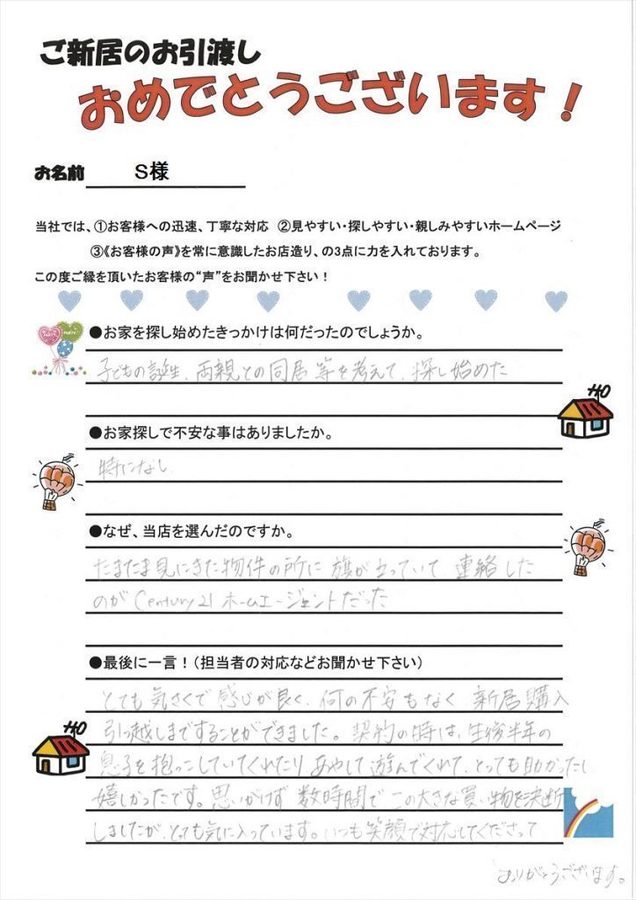 ご新居のお引渡し
おめでとうございます!
お名前 S様
当社では、①お客様への迅速、丁寧な対応 ②見やすい・探しやすい・親しみやすいホームページ
③《お客様の声》を常に意識したお店造り、の3点に力を入れております。
この度ご縁を頂いたお客様の“声”をお聞かせ下さい!
●お家を探し始めたきっかけは何だったのでしょうか。
子どもの誕生、両親との同居 等を考えて、探し始めた
●お家探しで不安な事はありましたか。
特になし
●なぜ、当店を選んだのですか。
たまたま見にきた物件の所に 旗が立っていて 連絡した
のが Century21 ホームエージェントだった
●最後に一言!(担当者の対応などお聞かせ下さい)
とても 気さくで 感じが良く、何の不安もなく 新居購入
引っ越しまですることができました。契約の時は、生後半年の
息子を抱っこしていてくれたり あやして 遊んでくれて、とっても助かったし
嬉しかったです。思いがけず 数時間で この大きな買い物を決断
しましたが、とても気に入っています。いつも笑顔で対応してくださって
ありがとうございます。